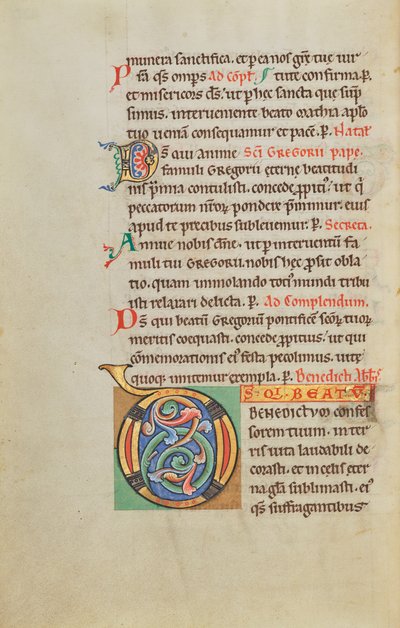 munera sanctifica. et per ea nos gr̃e tuę uir
Tute confirma. p.
P̃sta q̃s om̃ps Ad cōpl̃.
et misericors d̃s. ut per hęc sancta quę sūp
simus. interueniente beato mathia apl̃o
tuo ueniā consequamur et pacē. p. Natal̃
D̃s qui anime S̃CI GREGORII pape.
famuli GREGORII ęterne beatitudi
nis p̃mia contulisti. concede propiti᾽ ut q̇
peccatorum nr̃orꝝ pondere p̃mimur. eius
apud te precibus subleuemur. p. Secreta.
Annue nobis dñe. ut p̱ interuentū fa
muli tui GREGORII. nobis hęc prosit obla
tio. quam immolando toti᾽ mundi tribu
isti relaxari delicta. p. Ad Complendum.
D̃s qui beatū Gregoriū pontificem sc̃orꝝ tuorꝝ
meritis coequasti. concede propitius. ut qui
cōmemorationis ei᾽ festa pecolimus. uite
quoqꝫ imitemur exempla. p. Benedicti Abb̃.
O S. D̃S. Q̃I. BEATV̄
BENEDICTVM confes
sorem tuum. in ter
ris uita laudabili de
corasti. et in celis eter
na gl̃a sublimasti. ei᾽
q̃s suffragantibus